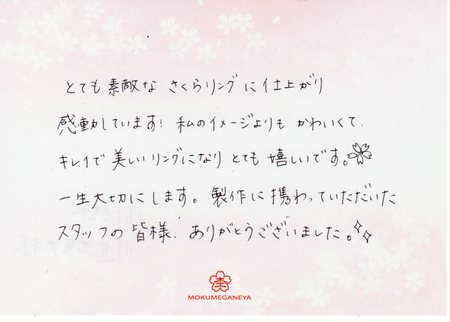 とても素敵な さくらリングに仕上がり
感動しています! 私のイメージよりも かわいくて、
キレイで美しいリングになり とても嬉しいです。
一生大切にします。製作に携わっていただいた
スタッフの皆様、ありがとうございました。
MOKUMEGANEYA